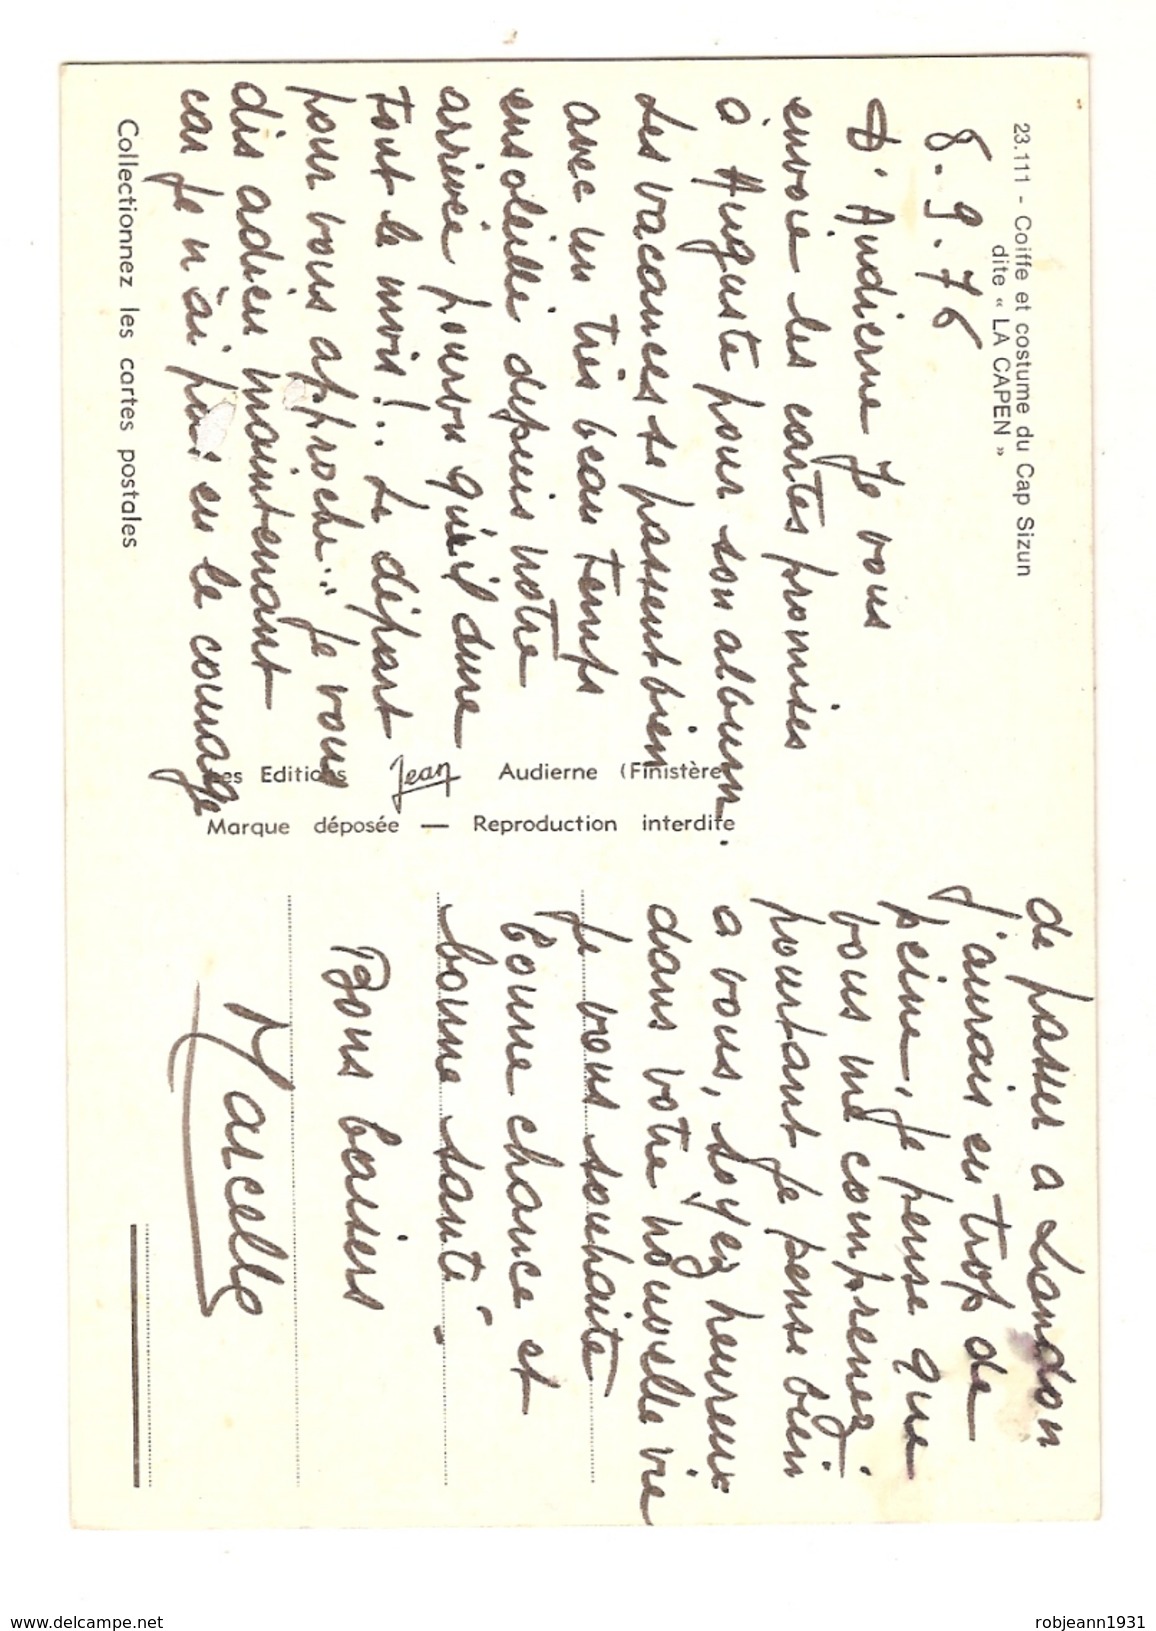 23.111 - Coiffe et costume du Cap Sizun
dite « LA CAPEN »
8.9.76
D'Audierne Je vous
envoie les cartes promises
à Auguste pour son album.
Les vacances se passent bien
avec un très beau temps
ensoleillé depuis notre
arrivée pourvu qu'il dure
tout le mois!.. Le départ
pour vous approche... Je vous
dis adieu maintenant
car Je n'ai pas eu le courage
Collectionnez les cartes postales
Les Editions Jean Audierne (Finistère)
Marque déposée — Reproduction interdite
de passer a Landon
J'aurais eu trop de
peine, Je pense que
vous me comprenez
pourtant Je pense bien
a vous, soyez heureux
dans votre nouvelle vie
Je vous souhaite
bonne chance et
bonne santé.
Bons baisers
Marcelle
www.delcampe.net
robjeann1931